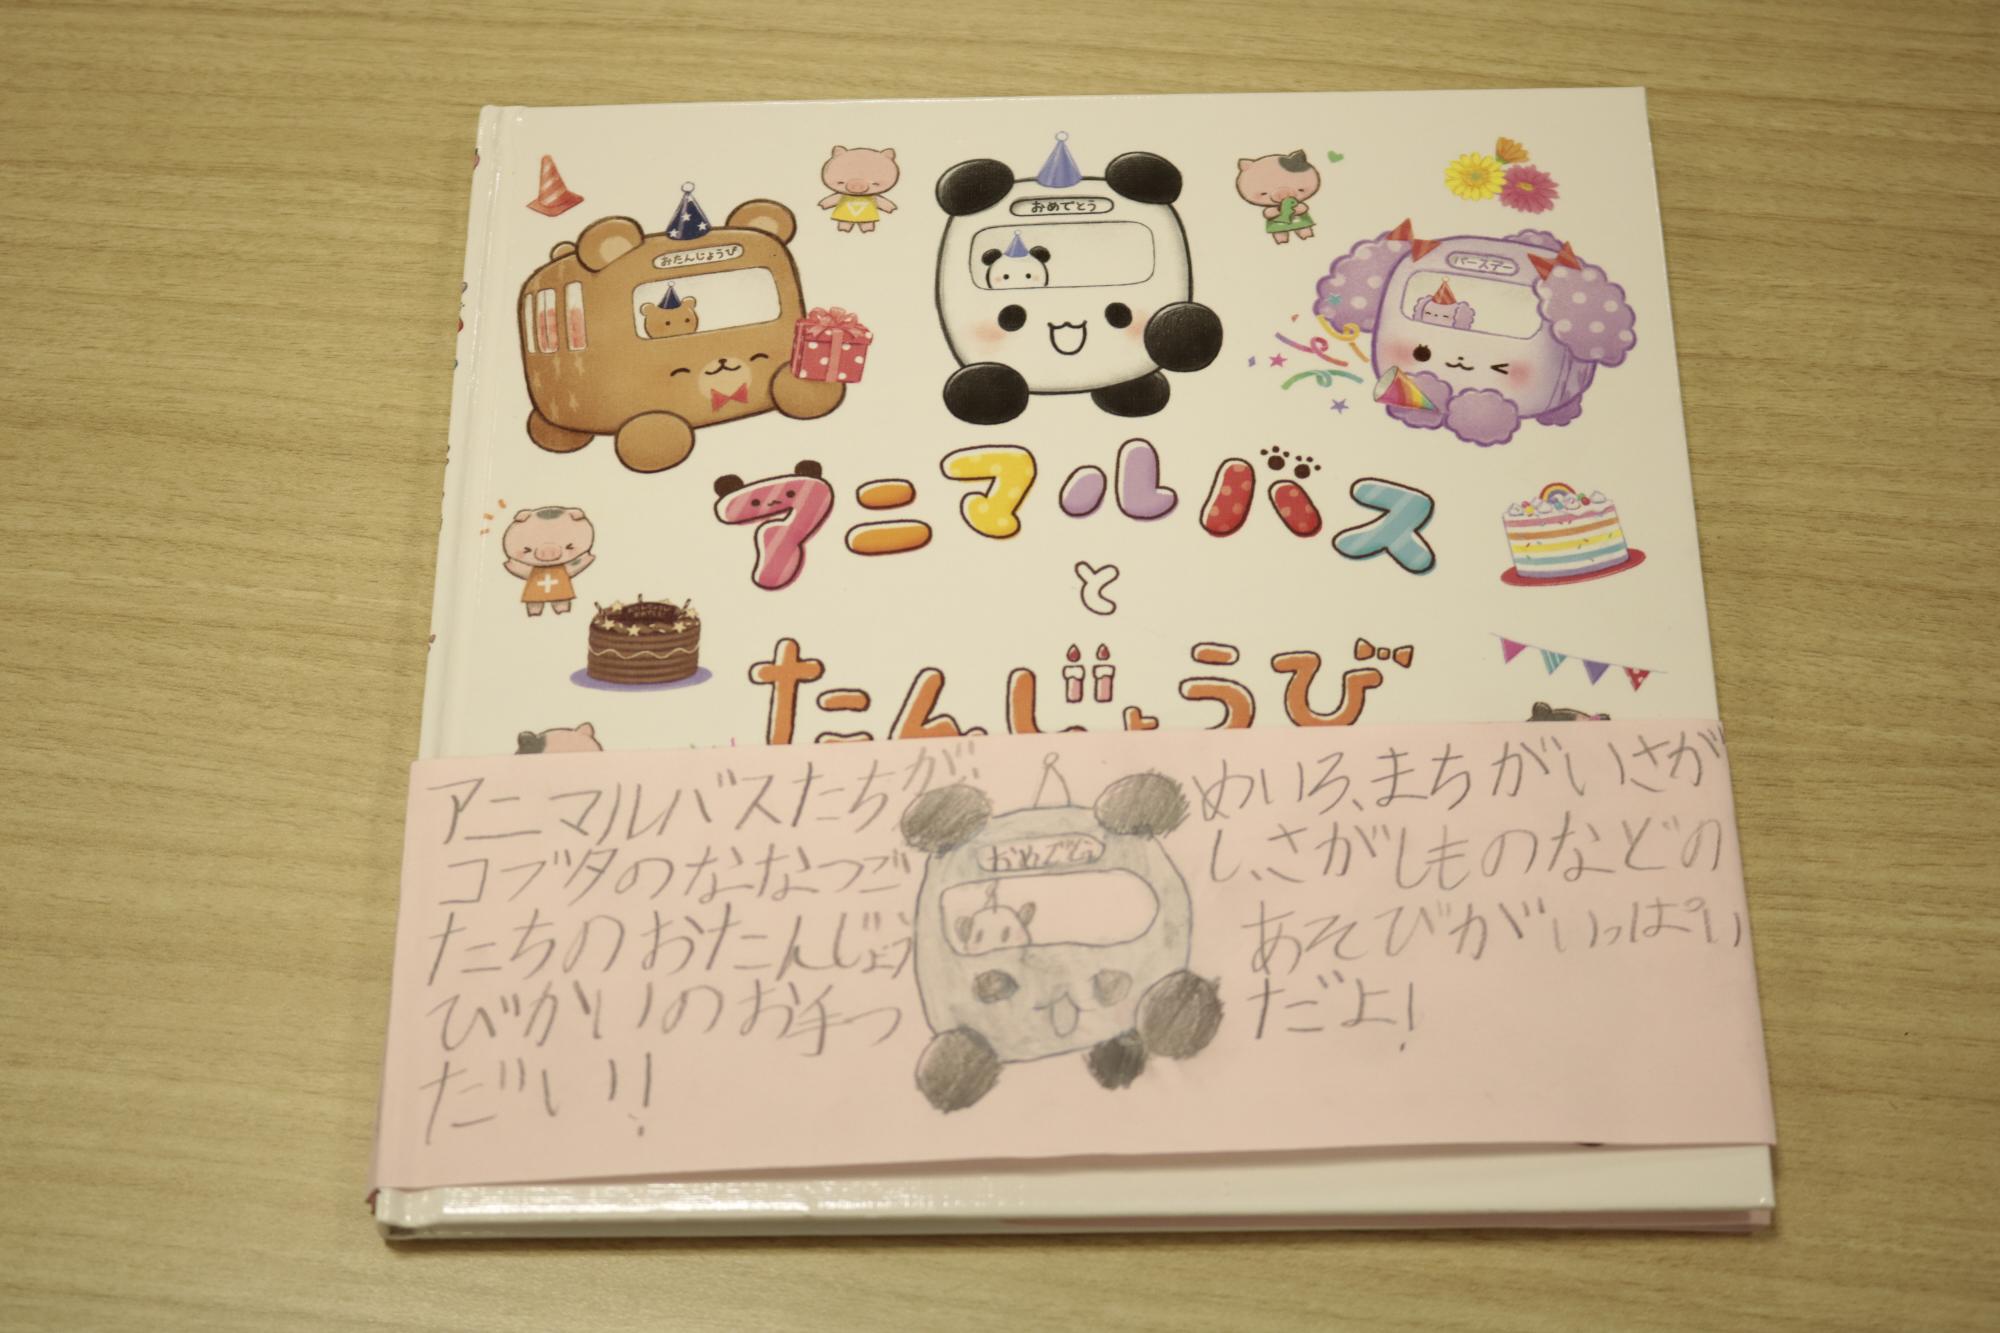 おめでとう
おたんじょうび
バースデー
アニマルバス
と
たんじょうび
アニマルバスたちが、
コブタのななつご
たちのおたんじょう
びかいのお手つ
だい!!
おめでとう
めいろ、まちがいさが
し、さがしものなどの
あそびがいっぱい
だよ!